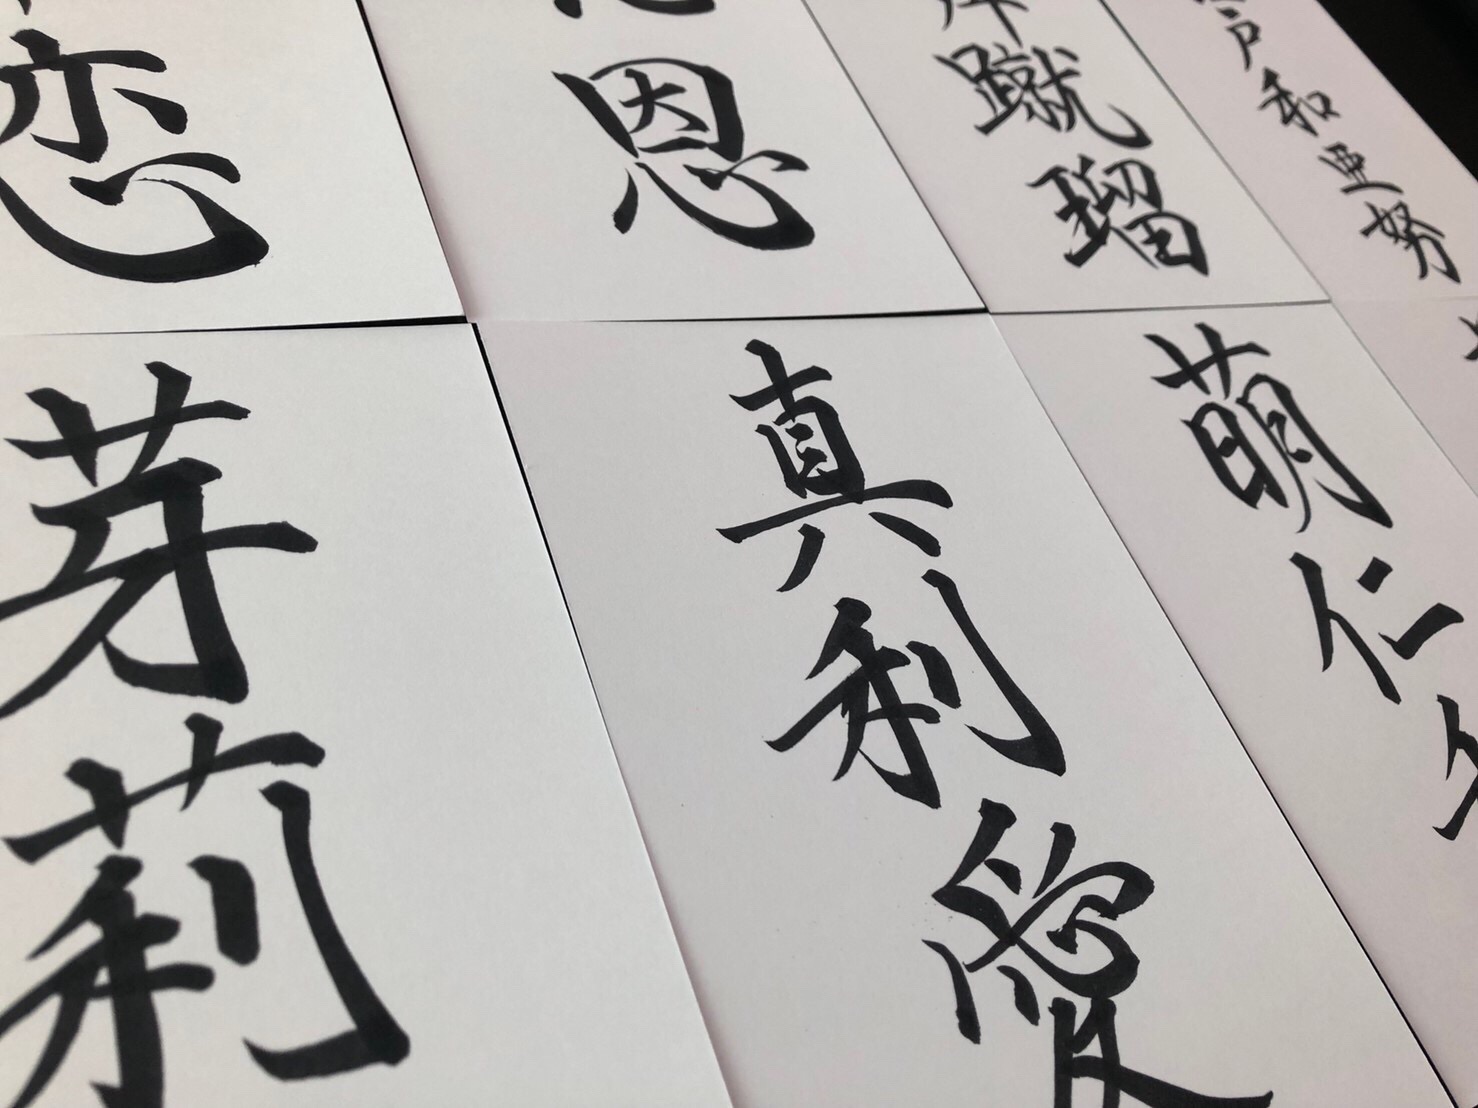 恋
恩
蹴瑠
戸和亜努
芽莉
真利
萌仁